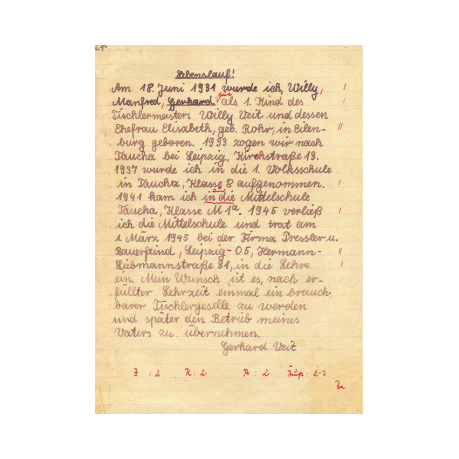 Lebenslauf!
Am 18. Juni 1931 wurde ich, Willy,
Manfred, Gerhard als 1. Kind des
Tischlermeisters Willy Veit und dessen
Ehefrau Elisabeth, geb. Rohr, in Eilen-
burg geboren. 1933 zogen wir nach
Taucha bei Leipzig, Kirchstraße 19.
1937 wurde ich in die 1. Volksschule
in Taucha, Klasse 8 aufgenommen.
1941 kam ich in die Mittelschule
Taucha, Klasse M 1a. 1945 verließ
ich die Mittelschule und trat am
1. März 1945 bei der Firma Pressler u.
Bauerfeind, Leipzig-O5, Hermann-
straße 31, in die Lehre
ein. Mein Wunsch ist es, nach er-
füllter Lehrzeit einmal ein brauch-
barer Tischlergeselle zu werden
und später den Betrieb meines
Vaters zu übernehmen.
Gerhard Veit
J : 2 R : 2 A : 2 2-3